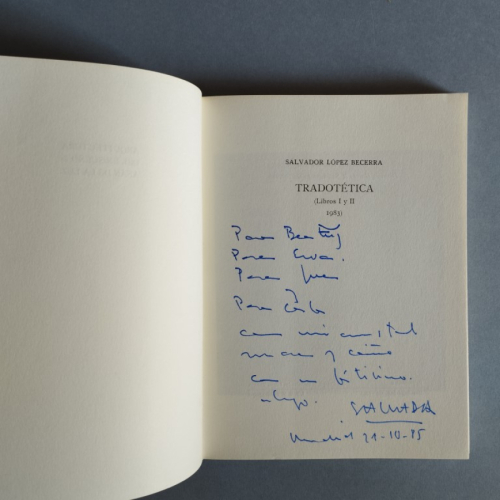 SALVADOR LÓPEZ BECERRA
TRADOTÉTICA
(Libros I y II
1983)
Para Beatriz
Para Eva.
Para Juan
Para Carlos
con mi amistad
y cariño
con un
SALVADOR
Madrid 21-10-85